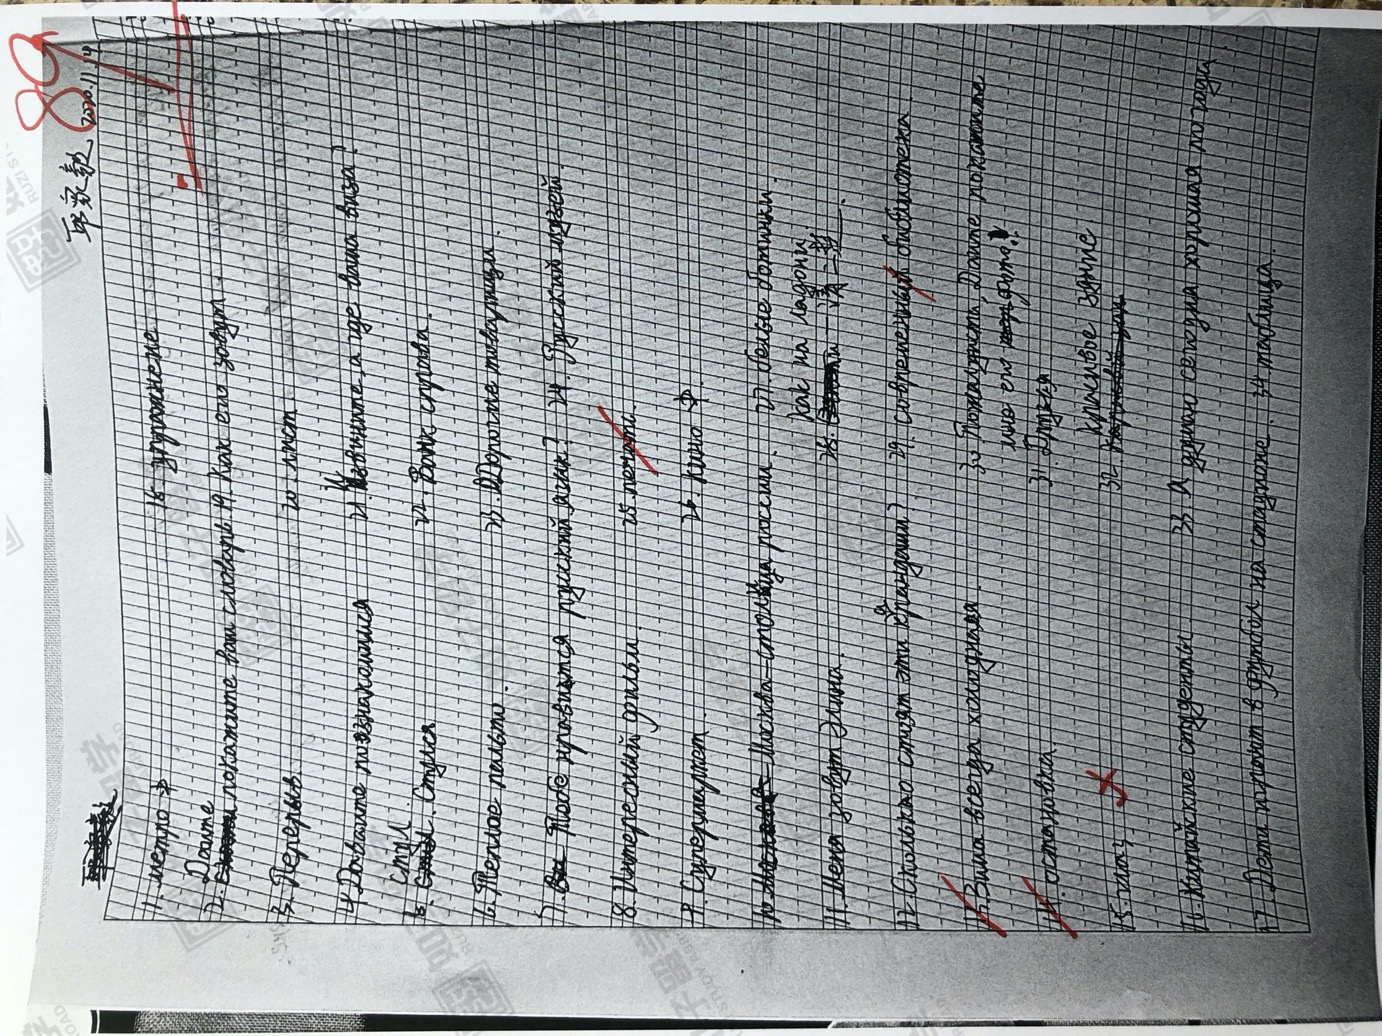 89
2020.11.
1. метро
Даите
2. покажите вот словарь
3. Перерыв
4. Давайте познакомимся
Стул
5. Стулья
6. Теплое пальто.
7. Тебе нравится русский язык?
8. Интересный фильм.
9. Супермаркет.
10. Москва – столица россии.
11. Меня зовут Элина.
12. Сколько стоят эти карандаши?
13. Зима всегда холодная.
14. остановка
15.
16. Китайские студенты
17. Дети играют в футбол на стадионе.
18 упражнене
19. Как его зовут.
20. лист
21. Извините, а где ваша виза?
22. Банк справа.
23. Дорогие товарищи.
24. Русский музей
25.
26. Кино
27. белые ботинки.
как на ладони
28. 清二楚.
29. современный библиотека
30 Пожалуйста, Даите покажите
мне его фото.
31. Друзья
красивое здние
32.
33 Я думаю сегодня хорошая погода.
34 таблица.